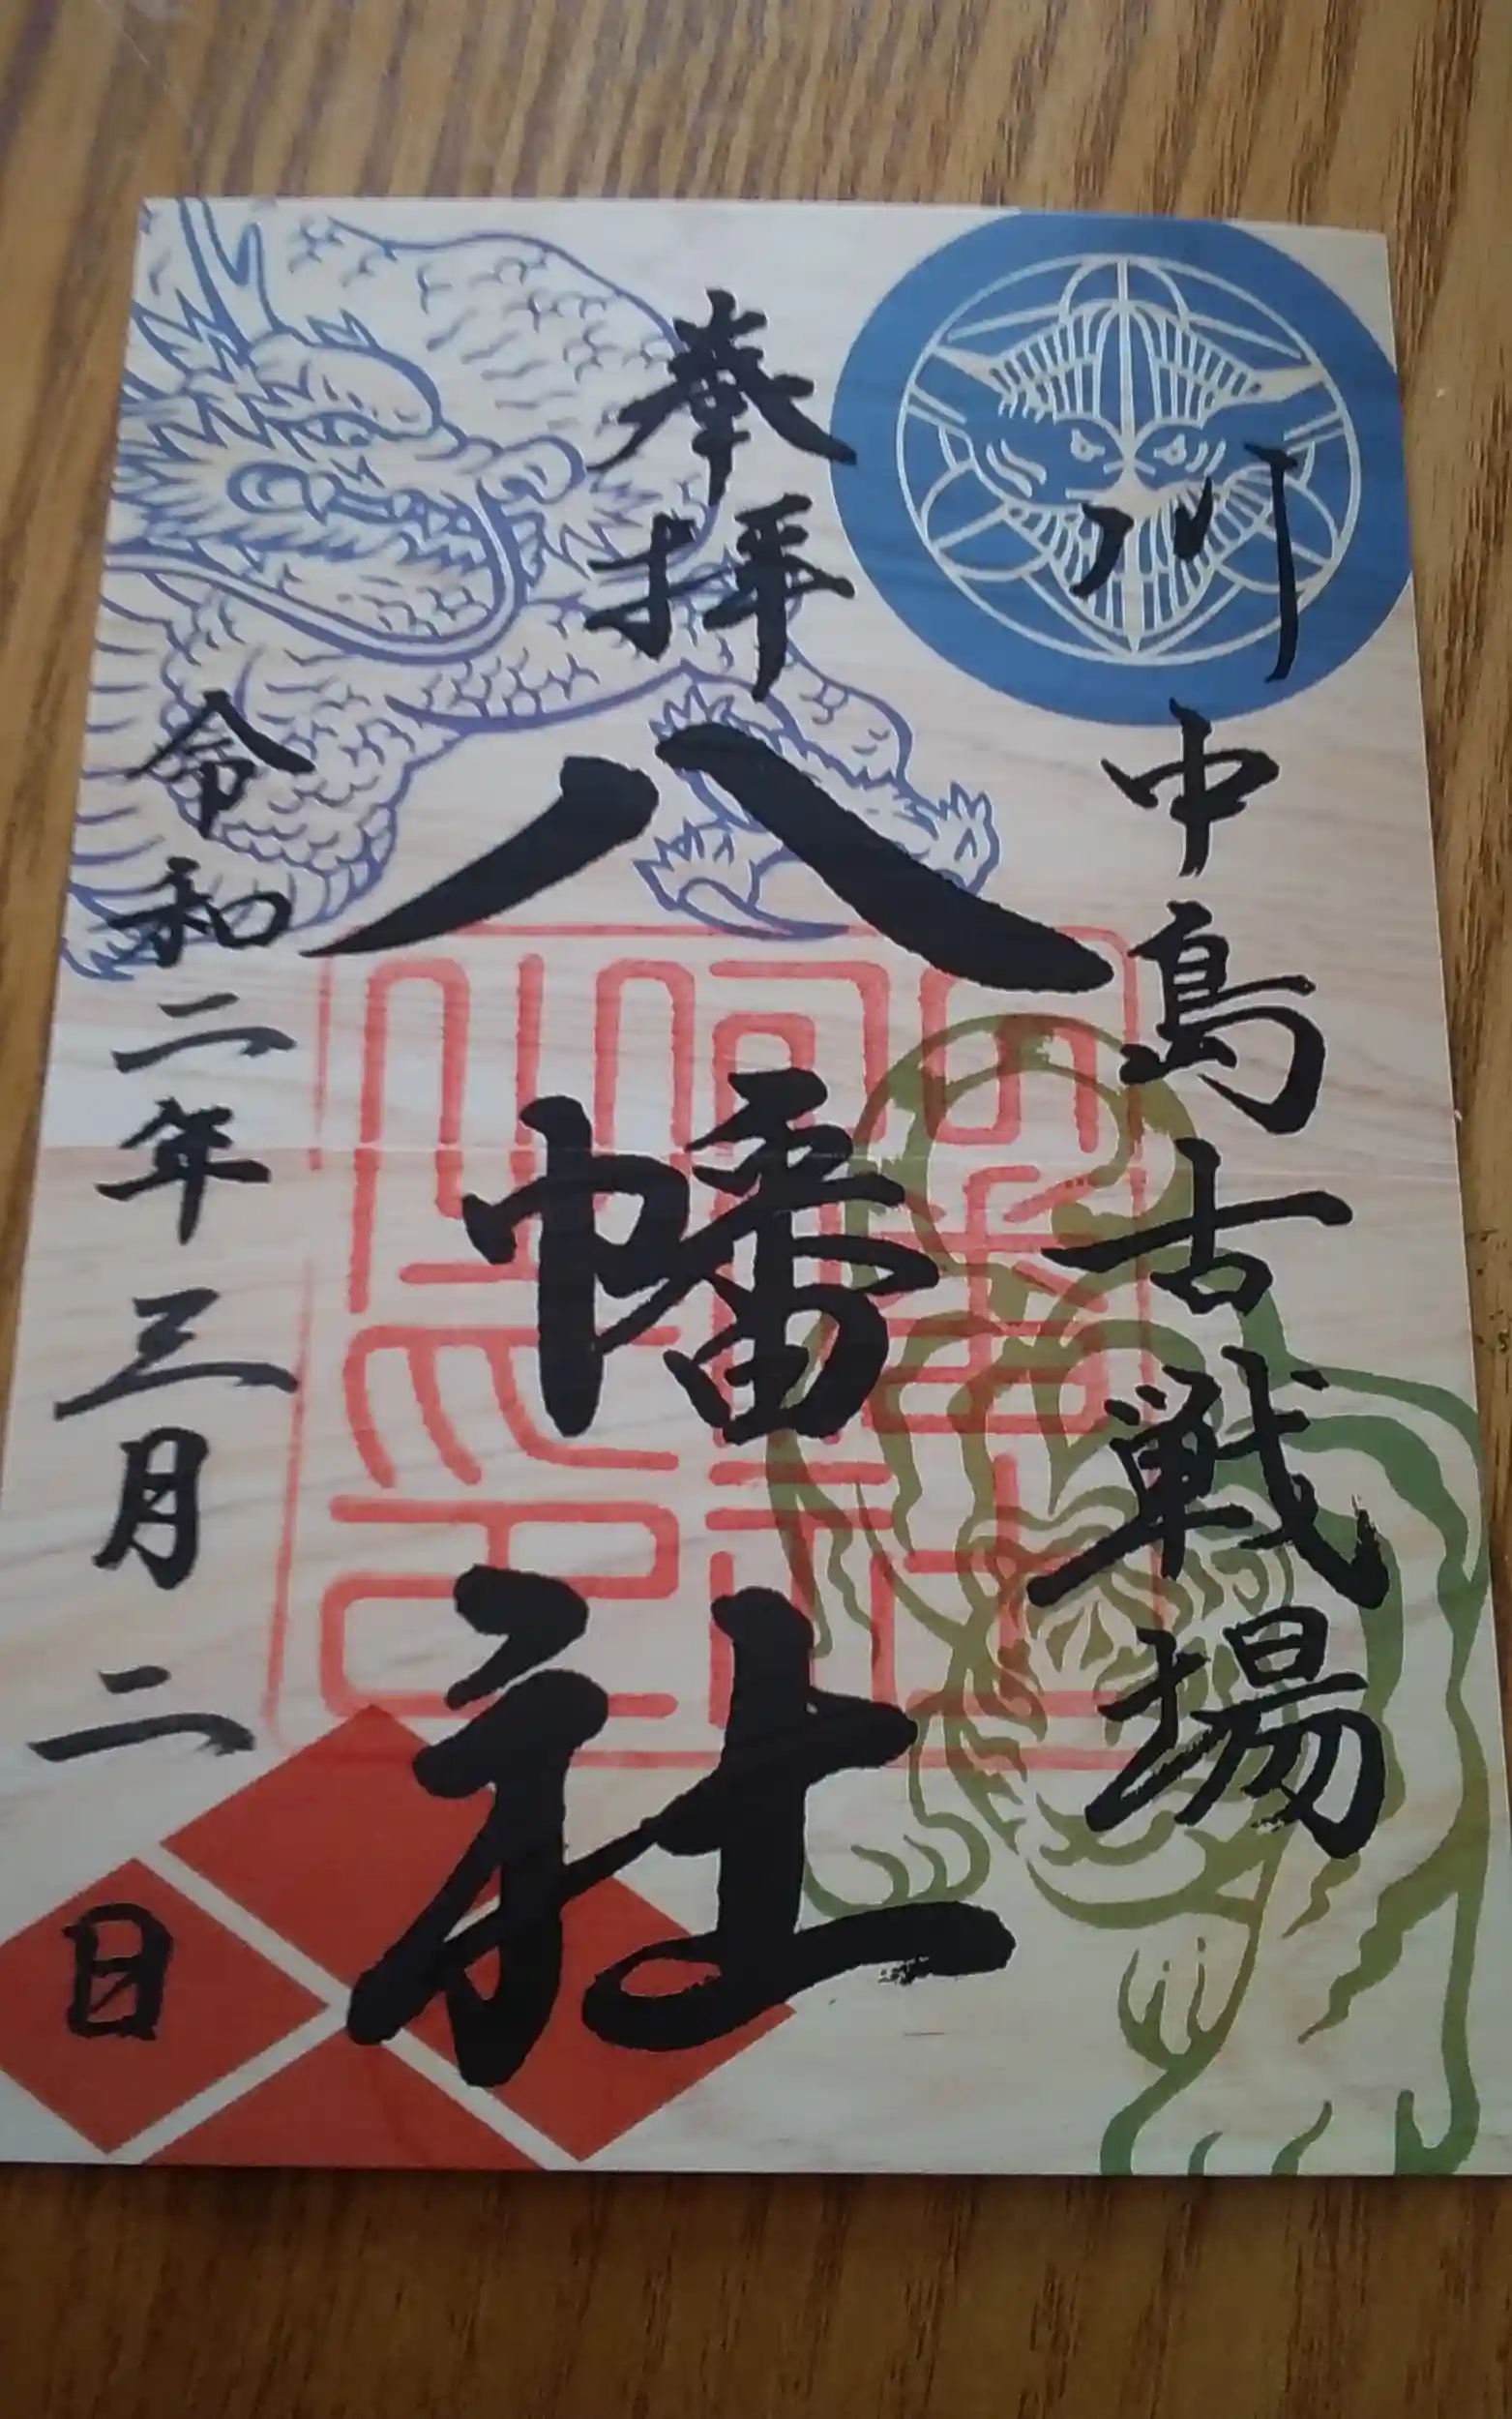 川中島古戦場
奉拝
八幡社
令和二年三月二日